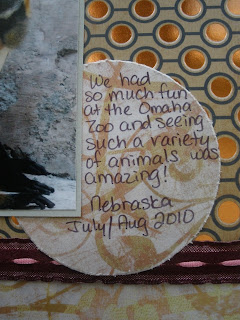 We had
so much fun
at the Omaha
Zoo and seeing
such a variety
of animals was
amazing!
Nebraska
July/Aug 2010